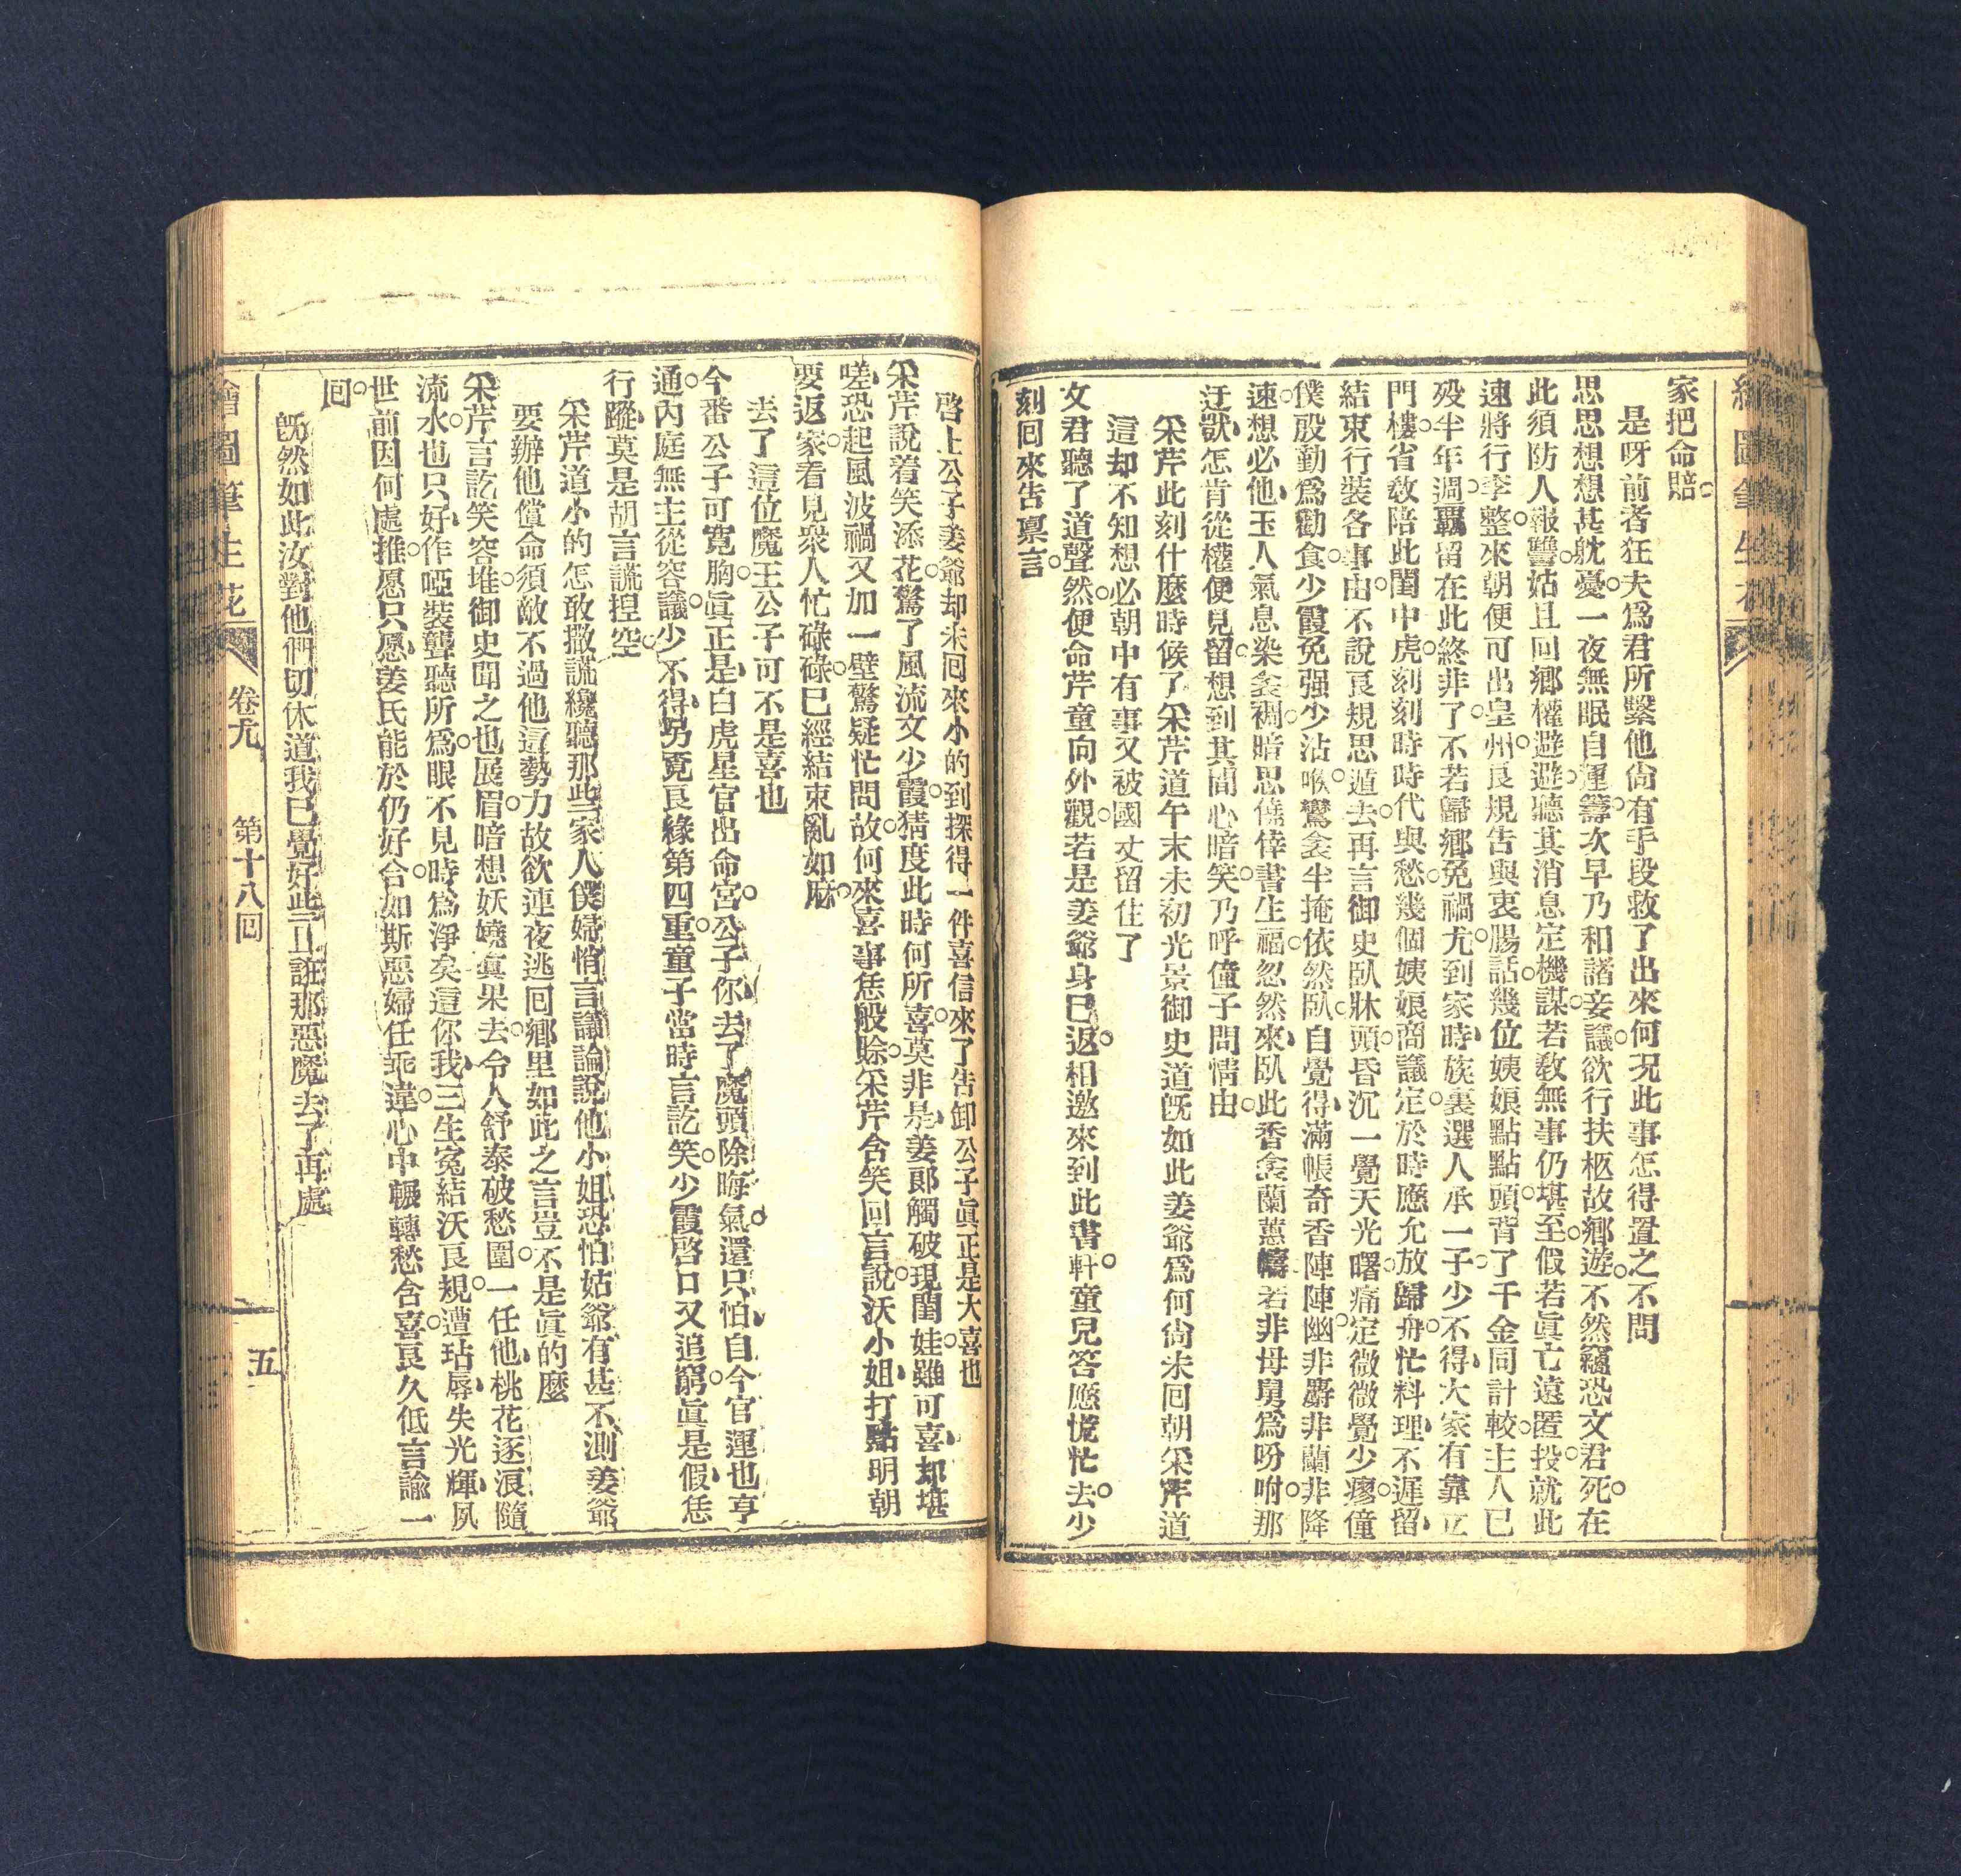 家把命賠
是呀前者狂夫爲君所繫他尙有手段救了出來何况此事怎得置之不問
思思想想甚躭憂一夜無眠自運籌次早乃和諸妾議欲行扶柩故鄕遊不然竊恐文君死在
此須防人報讐姑且回鄕權避避聽其消息定機謀若敎無事仍堪至假若眞亡遠匿投就此
速將行李整來朝便可出皇州良規告與衷腸話幾位姨娘點點頭背了千金同計較主人已
歿半年週羈留在此終非了不若歸鄕免禍尤到家時族裏選人承一子少不得大家有靠立
門樓省敎陪此閨中虎刻刻時時代與愁幾個姨娘商議定於時應允放歸舟忙料理不遲留
結束行裝各事由不說良規思遁去再言御史臥牀頭昏沉一覺天光曙痛定微微覺少瘳僮
僕殷勤爲勸食少霞免强少沾喉鸞衾半掩依然臥自覺得滿帳奇香陣陣幽非麝非蘭非降
速想必他玉人氣息染衾裯暗思僥倖書生福忽然來臥此香衾蘭蕙幬若非母舅爲吩咐那
迂歡怎肯從權便見留想到其間心暗笑乃呼僮子問情由
采芹此刻什麼時候了采芹道午末未初光景御史道旣如此姜爺爲何尙未回朝采芹道
這却不知想必朝中有事又被國丈留住了
文君聽了道聲然便命芹童向外觀若是姜爺身已返相邀來到此書軒童兒答應慌忙去少
刻回來告禀言
啓上公子姜爺却未回來小的到探得一件喜信來了告卸公子眞正是大喜也
采芹說着笑添花驚了風流文少霞猜度此時何所喜莫非是姜郎觸破現閨娃雖可喜却堪
嗟恐起風波禍又加一壁驚疑忙問故何來喜事恁般賒采芹含笑回言說沃小姐打點明朝
要返家着見衆人忙碌碌已經結束亂如麻
去了這位魔王公子可不是喜也
今番公子可寬胸眞正是白虎星官出命宮公子你去了魔頭除晦氣還只怕自今官運也亨
通內庭無主從容議少不得另覓良緣第四重童子當時言訖笑少霞啓口又追窮眞是假恁
行蹤莫是胡言謊捏空
采芹道小的怎敢撒謊纔聽那些家人僕婦悄言議論說他小姐恐怕姑爺有甚不測姜爺
要辦他償命須敵不過他這勢力故欲連夜逃回鄕里如此之言豈不是眞的麼
采芹言訖笑容堆御史聞之也展眉暗想妖嬈眞果去令人舒泰破愁圍一任他桃花逐浪隨
流水也只好作啞裝聾聽所爲眼不見時爲淨矣這你我三生寃結沃良規遭玷辱失光輝夙
世前因何處推愿只愿姜氏能於仍好合如斯惡婦任乖違心中輾轉愁含喜良久低言諭一
回
旣然如此汝對他們切休道我已覺好些只說那惡魔去了再處
繪圖筆生花
卷九
第十八回
五